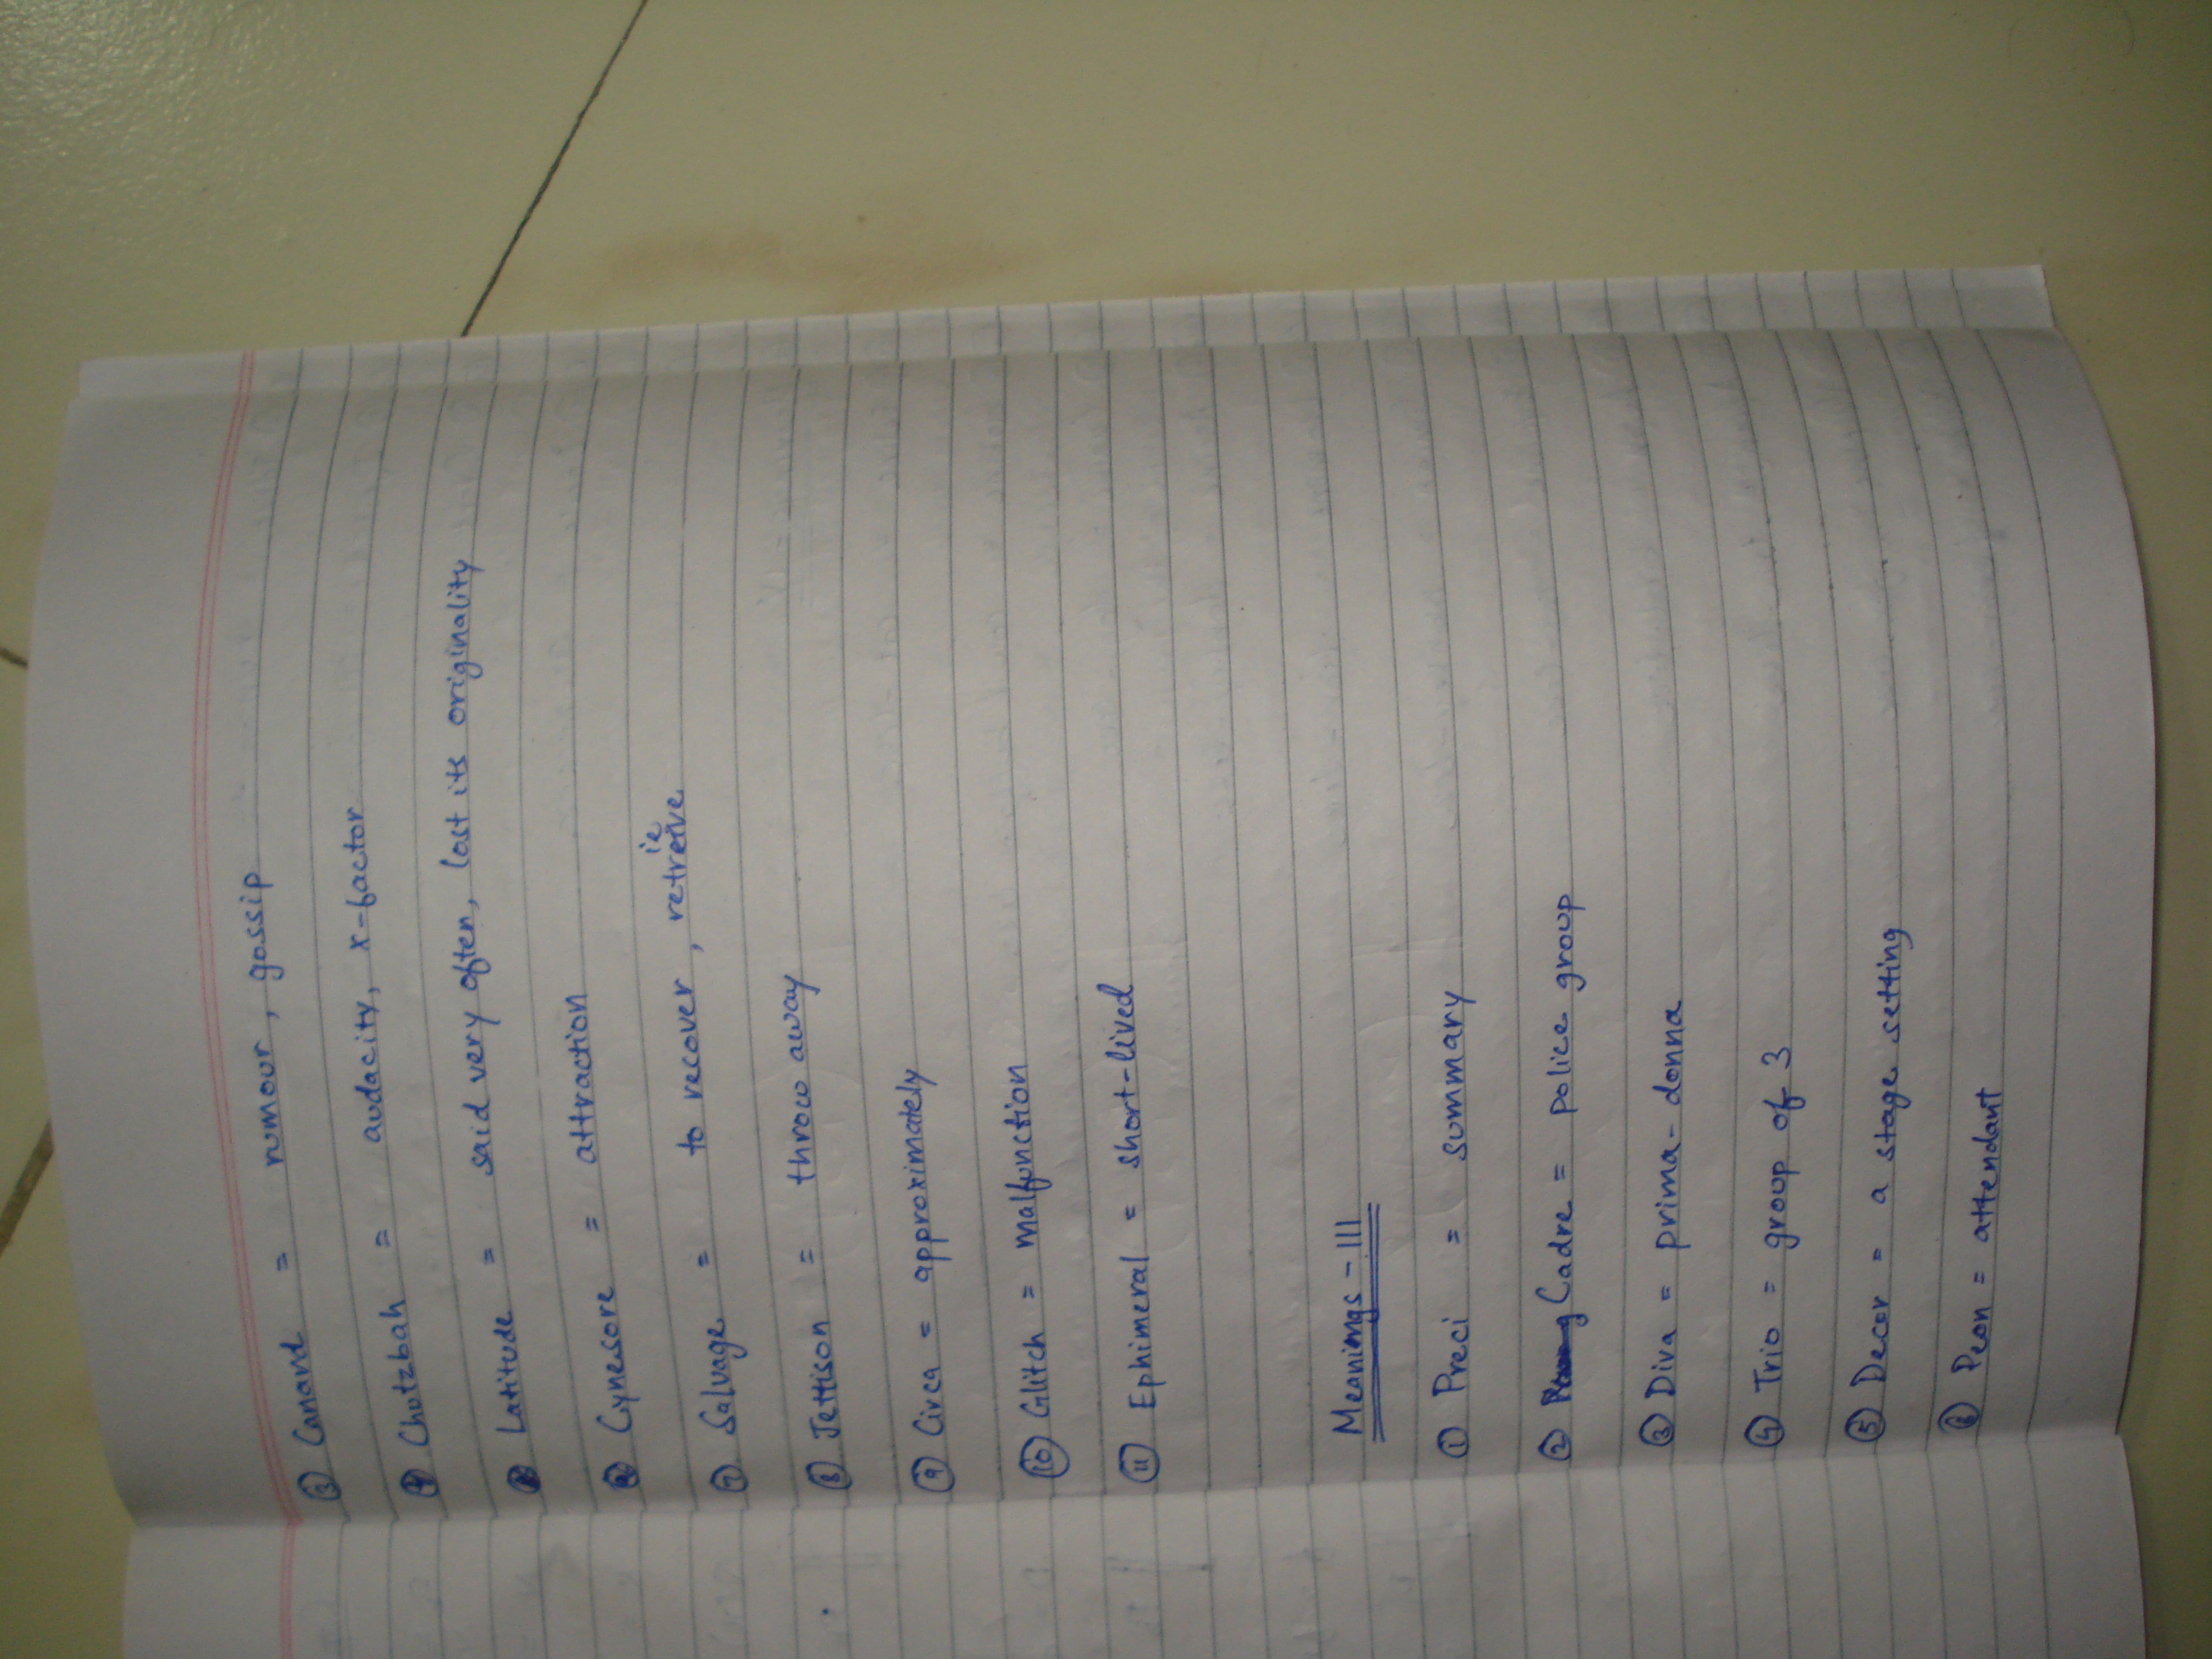 ③ Canard = rumour, gossip
④ Chutzbah = audacity, x-factor
Latitude = said very often, lost its originality
Cynesore = attraction
⑦ Salvage = to recover, retreive ie
⑧ Jettison = throw away
⑨ Circa = approximately
⑩ Glitch = malfunction
⑪ Ephimeral = short-lived
Meanings - III
① Preci = summary
② Cadre = police group
③ Diva = prima-donna
④ Trio = group of 3
⑤ Decor = a stage setting
⑥ Peon = attendant